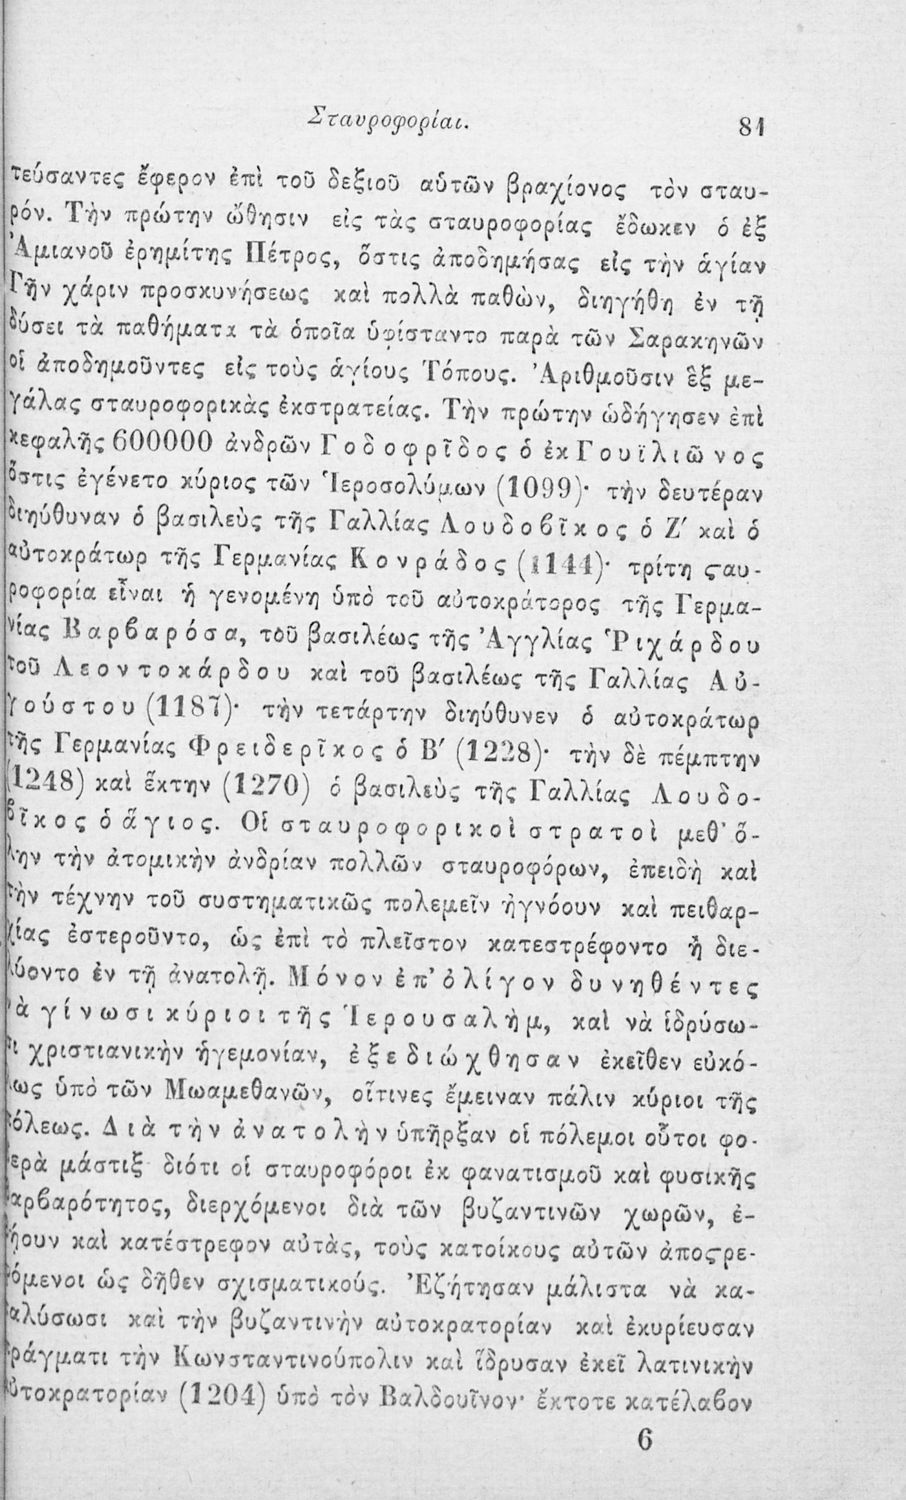 Σταυροφορίαι. 81
τεύσαντες ἔφερον ἐπὶ τοῦ δεξιοῦ αὑτῶν βραχίονος τὸν σταυ-
ρόν. Τὴν πρώτην ὤθησιν εἰς τὰς σταυροφορίας ἔδωκεν ὁ ἐξ
Ἀμιανοῦ ἐρημίτης Πέτρος, ὅστις ἀποδημήσας εἰς τὴν ἁγίαν
Γῆν χάριν προσκυνήσεως καὶ πολλὰ παθὼν, διηγήθη ἐν τῇ
δύσει τὰ παθήματα τὰ ὁποῖα ὑφίσταντο παρὰ τῶν Σαρακηνῶν
οἱ ἀποδημοῦντες εἰς τοὺς ἁγίους Τόπους. Ἀριθμοῦσιν ἓξ με-
γάλας σταυροφορικὰς ἐκστρατείας. Τὴν πρώτην ὡδήγησεν ἐπὶ
κεφαλῆς 600000 ἀνδρῶν Γοδοφρῖδος ὁ ἐκ Γουϊλιῶνος
ὅστις ἐγένετο κύριος τῶν Ἱεροσολύμων (1099)· τὴν δευτέραν
διηύθυναν ὁ βασιλεὺς τῆς Γαλλίας Λουδοβῖκος ὁ Ζ′ καὶ ὁ
αὐτοκράτωρ τῆς Γερμανίας Κονράδος (1144)· τρίτη ϛαυ-
ροφορία εἶναι ἡ γενομένη ὑπὸ τοῦ αὐτοκράτορος τῆς Γερμα-
νίας Βαρβαρόσα, τοῦ βασιλέως τῆς Ἀγγλίας Ῥιχάρδου
τοῦ Λεοντοκάρδου καὶ τοῦ βασιλέως τῆς Γαλλίας Αὐ-
γούστου (1187)· τὴν τετάρτην διηύθυνεν ὁ αὐτοκράτωρ
τῆς Γερμανίας Φρειδερῖκος ὁ Β′ (1228)· τὴν δὲ πέμπτην
(1248) καὶ ἕκτην (1270) ὁ βασιλεὺς τῆς Γαλλίας Λουδο-
βῖκος ὁ ἅγιος. Οἱ σταυροφορικοὶ στρατοὶ μεθ᾽ ὅ-
λην τὴν ἀτομικὴν ἀνδρίαν πολλῶν σταυροφόρων, ἐπειδὴ καὶ
τὴν τέχνην τοῦ συστηματικῶς πολεμεῖν ἠγνόουν καὶ πειθαρ-
χίας ἐστεροῦντο, ὡς ἐπὶ τὸ πλεῖστον κατεστρέφοντο ἢ διε-
λύοντο ἐν τῇ ἀνατολῇ. Μόνον ἐπ᾽ ὀλίγον δυνηθέντες
νὰ γίνωσι κύριοι τῆς Ἱερουσαλὴμ, καὶ νὰ ἱδρύσω-
σι χριστιανικὴν ἡγεμονίαν, ἐξεδιώχθησαν ἐκεῖθεν εὐκό-
λως ὑπὸ τῶν Μωαμεθανῶν, οἵτινες ἔμειναν πάλιν κύριοι τῆς
πόλεως. Διὰ τὴν ἀνατολὴν ὑπῆρξαν οἱ πόλεμοι οὗτοι φο-
βερὰ μάστιξ διότι οἱ σταυροφόροι ἐκ φανατισμοῦ καὶ φυσικῆς
βαρβαρότητος, διερχόμενοι διὰ τῶν βυζαντινῶν χωρῶν, ἐ-
δῄουν καὶ κατέστρεφον αὐτὰς, τοὺς κατοίκους αὐτῶν ἀποϛρε-
φόμενοι ὡς δῆθεν σχισματικούς. Ἐζήτησαν μάλιστα νὰ κα-
ταλύσωσι καὶ τὴν βυζαντινὴν αὐτοκρατορίαν καὶ ἐκυρίευσαν
πράγματι τὴν Κωνσταντινούπολιν καὶ ἵδρυσαν ἐκεῖ λατινικὴν
αὐτοκρατορίαν (1204) ὑπὸ τὸν Βαλδουῖνον· ἔκτοτε κατέλαβον
6